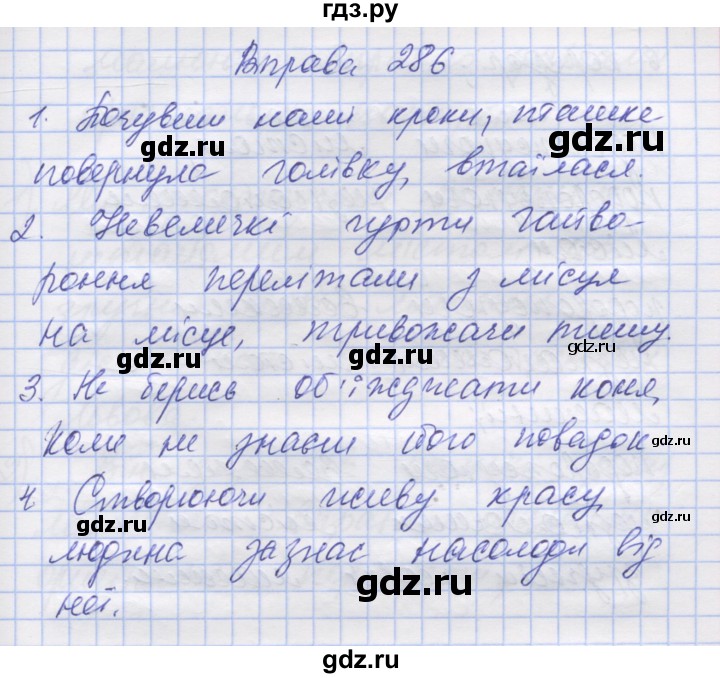 гдз.ру
Вправа 286
1. Почувши наші кроки, пташка
gdz.ru gdz.ru
повернула голівку, втаїлася.
2. Невеличкі гурти гайво-
gdz.ru
роння перелітали з місця
на місце, тривожачи тишу.
gdz.ru gdz.ru gdz.ru
3. Не берись об'їжджати коня,
коли не знаєш його повадок
gdz.ru
gdz.ru gdz.ru
4 Створюючи живу красу,
gdz.ru
людина зазнає насолоди від
gdz.ru
gdz.ru
неї.
gdz.ru